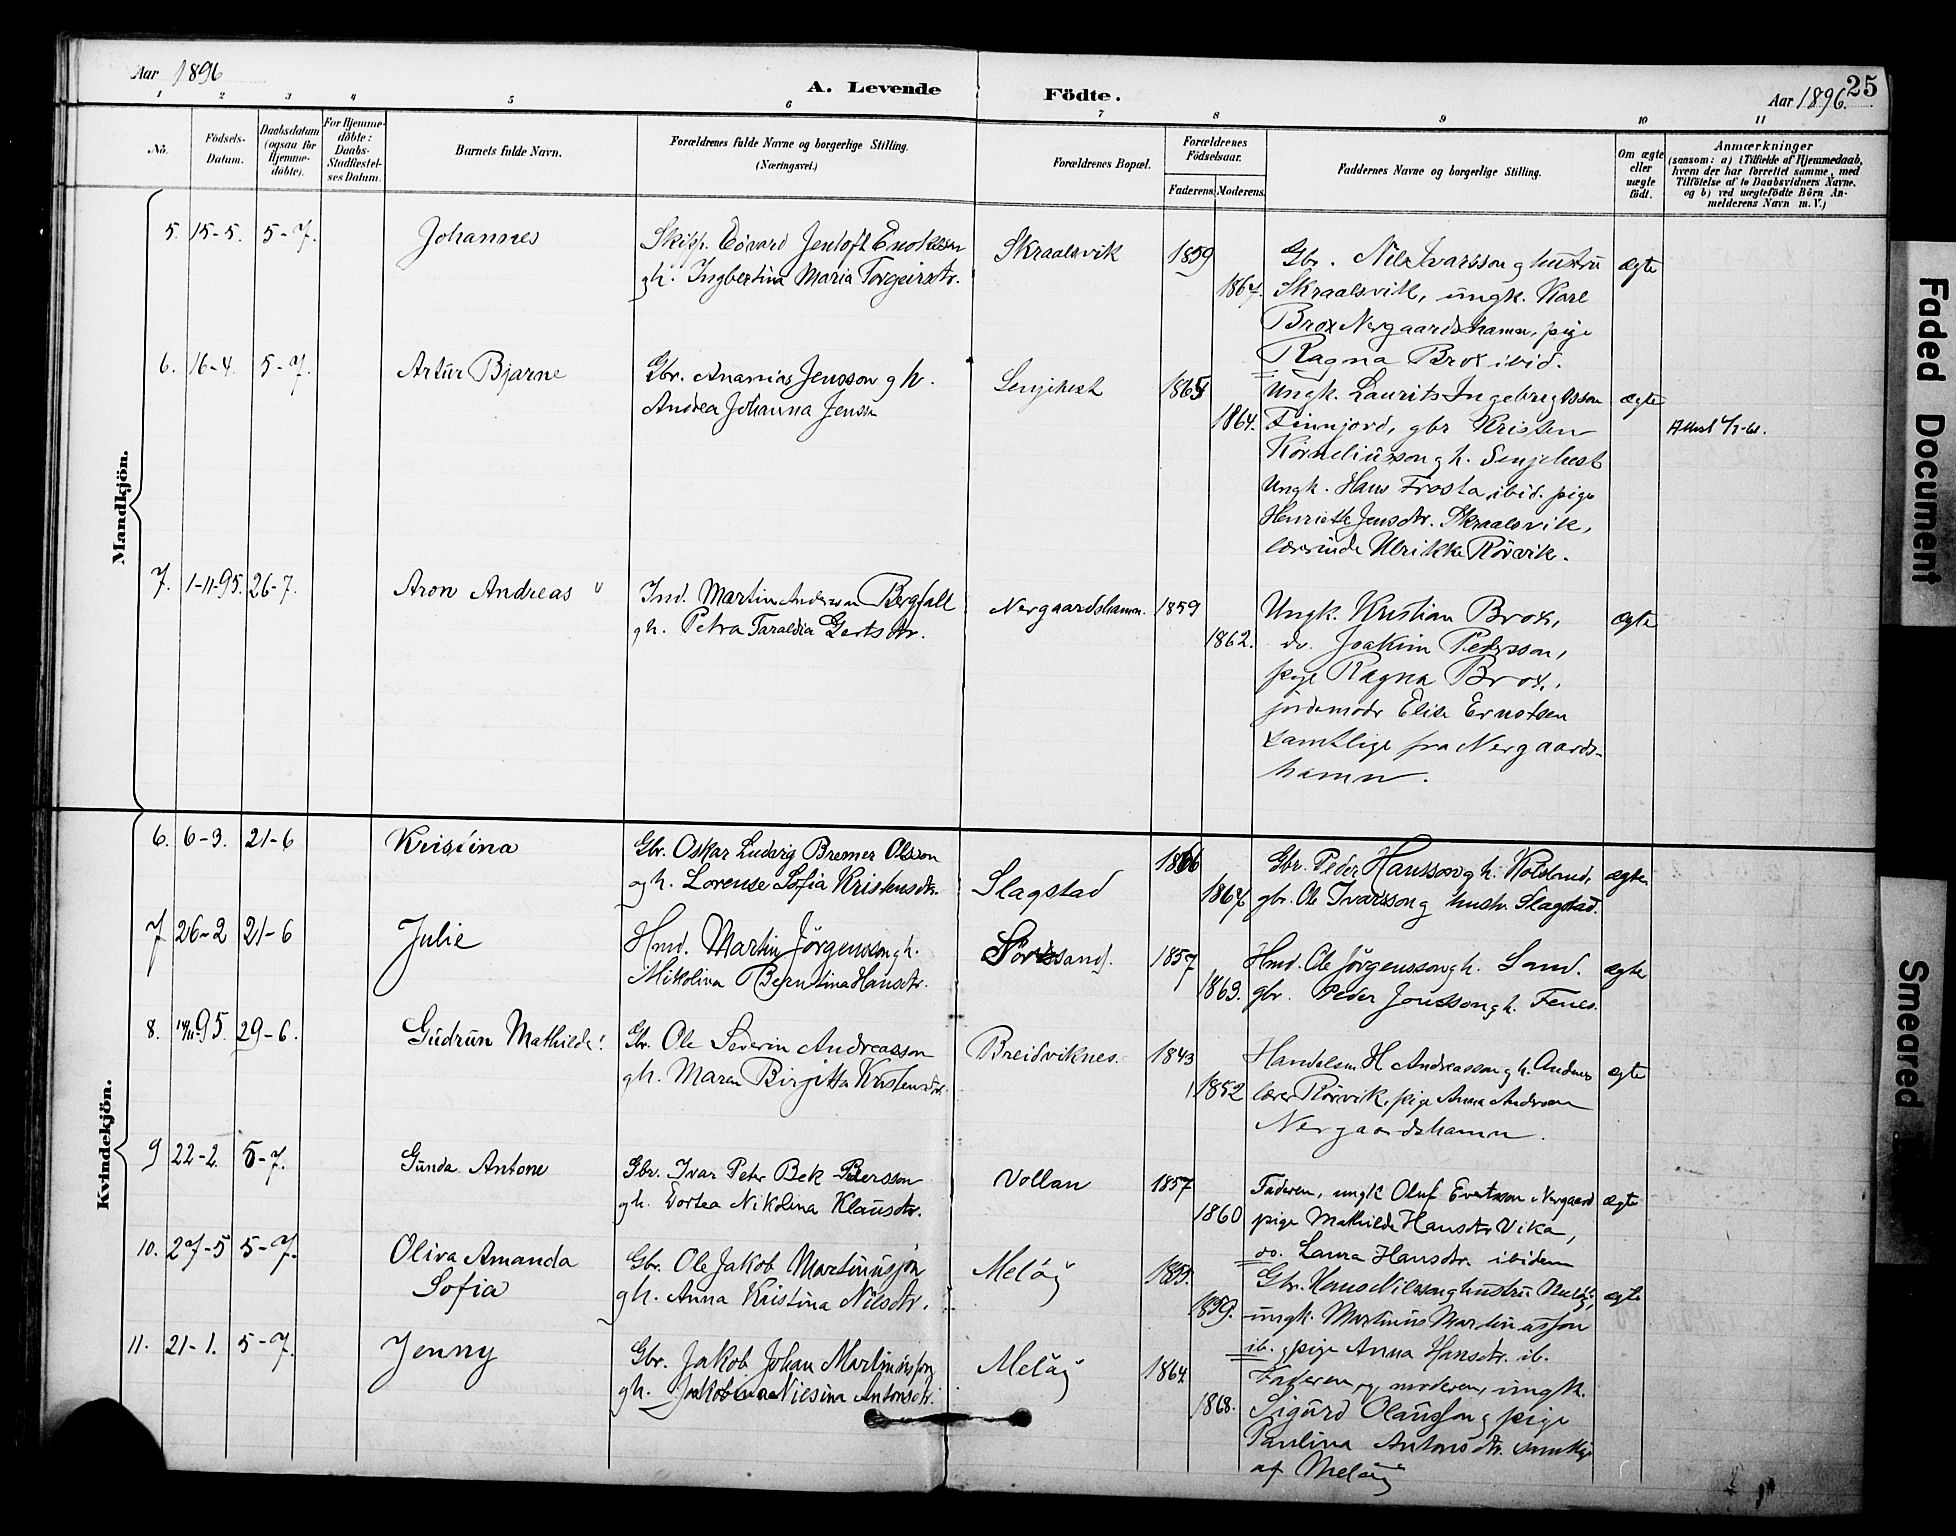 Aar 1896
A. Levende Födte.
Aar 1896. 25
1 2 3 4 5 6 7 8 9 10 11
No.
Födsels-Datum.
Daabsdatum (ogsaa for Hjemme-döbte).
For Hjemme-döbte: Daabs-Stadfæstel-ses Datum.
Barnets fulde Navn.
Forældrenes fulde Navne og borgerlige Stilling.
(Næringsvei.)
Forældrenes Bopæl.
Forældrenes Födselsaar.
Faderens. Moderens.
Faddernes Navne og borgerlige Stilling.
Om ægte eller uægte födt.
Anmærkninger
(saasom: a) i Tilfælde af Hjemmedaab,
hvem der har forrettet samme, med
Tilföielse af to Daabsvidners Navne,
og b) ved uægtefödte Börn An-
melderens Navn m. V.)
Mandkjön.
5. 15-5. 5-7. Johannes
Skipp. Edvard Jentoft Enoksen
gh. Ingbertina Maria Torgeirsdtr.
Skraalsvik 1859 1867.
Gbr. Nils Ivarsson g hustru
Skraalsvik, ungk. Karl
Brox Nergaardshamn, pige
Ragna Brox ibid.
ægte
6. 16-4. 5-7. Artur Bjarne
Gbr. Ananias Jensson g h.
Andrea Johanna Jensen
Senjehest 1865 1864.
Ungk. Laurits Ingebrigtsson
Finnjord, gbr Kristen
Korneliusson g h. Senjehest
Ungk. Hans Frosta ibid. pige
Henriette Jensdtr. Skraalsvik,
lærerinde Ulrikke Rörvik.
ægte
7. 1-11-95. 26-7. Aron Andreas
Ind. Martin Andersen Bergfall
gh. Petra Taraldia Gertsdtr.
Nergaardshamn. 1859 1862.
Ungk. Kristian Brox,
do. Joakim Pedersson,
pige Ragna Brox,
jordemodr Elise Ernstsen
samtlige fra Nergaards-
hamn.
ægte
Kvindekjön.
6. 6-3. 21-6 Kristina
Gbr. Oskar Ludvig Bremer Olsson
og h. Lorense Sofia Kristensdtr.
Slagstad 1866 1867
Gbr. Peder Hansson g h. Kolsland,
gbr. Ole Ivarsson g hustr. Slagstad.
ægte
7 26-2 21-6 Julie
Hmd. Martin Jörgensson g h.
Mikolina Berntina Hansdtr.
Sörsand. 1857 1863.
Hmd. Ole Jörgensson g h. Sand.
gbr. Peder Jonsson g h. Fenes.
ægte
8. 95. 29-6. Gudrun Mathilde
Gbr. Ole Severin Andreasson
gh. Maren Birgitta Kristensdtr.
Breidviknes. 1843 1852
Handelsm H Andreasson g h.
lærer Rörvik, pige Anna Andersen
Nergaardshamn.
ægte
9 22-2. 5-7. Gunda Antone
Gbr. Ivar Peter Bek Pedersson
gh. Dortea Nikolina Klausdtr.
Vollan 1857 1860
Faderen, ungk Oluf Evertsson Nergaard
pige Mathilde Hansdtr Vika,
do. Laura Hansdtr. ibidem
ægte
10. 27-5 5-7. Oliva Amanda
Sofia
Gbr. Ole Jakob Martinusson
gh. Anna Kristina Nilsdtr.
Melöy 1859.
Gbr. Hans Nilsson g hustru Melöy,
ungk. Martinus Martinusson
ib., pige Anna Hansdtr. ib.
ægte
11. 21-1. 5-7. Jenny
Gbr. Jakob Johan Martinusson
gh. Jakobina Niesina Antonsdtr.
Melöy 1864. 1868.
Faderen og moderen, ungk.
Sigurd Olausson g pige
Paulina Antonsdtr. samtlige
af Melöy
Faded Document
Smeared